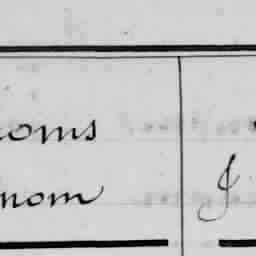 noms
nom J